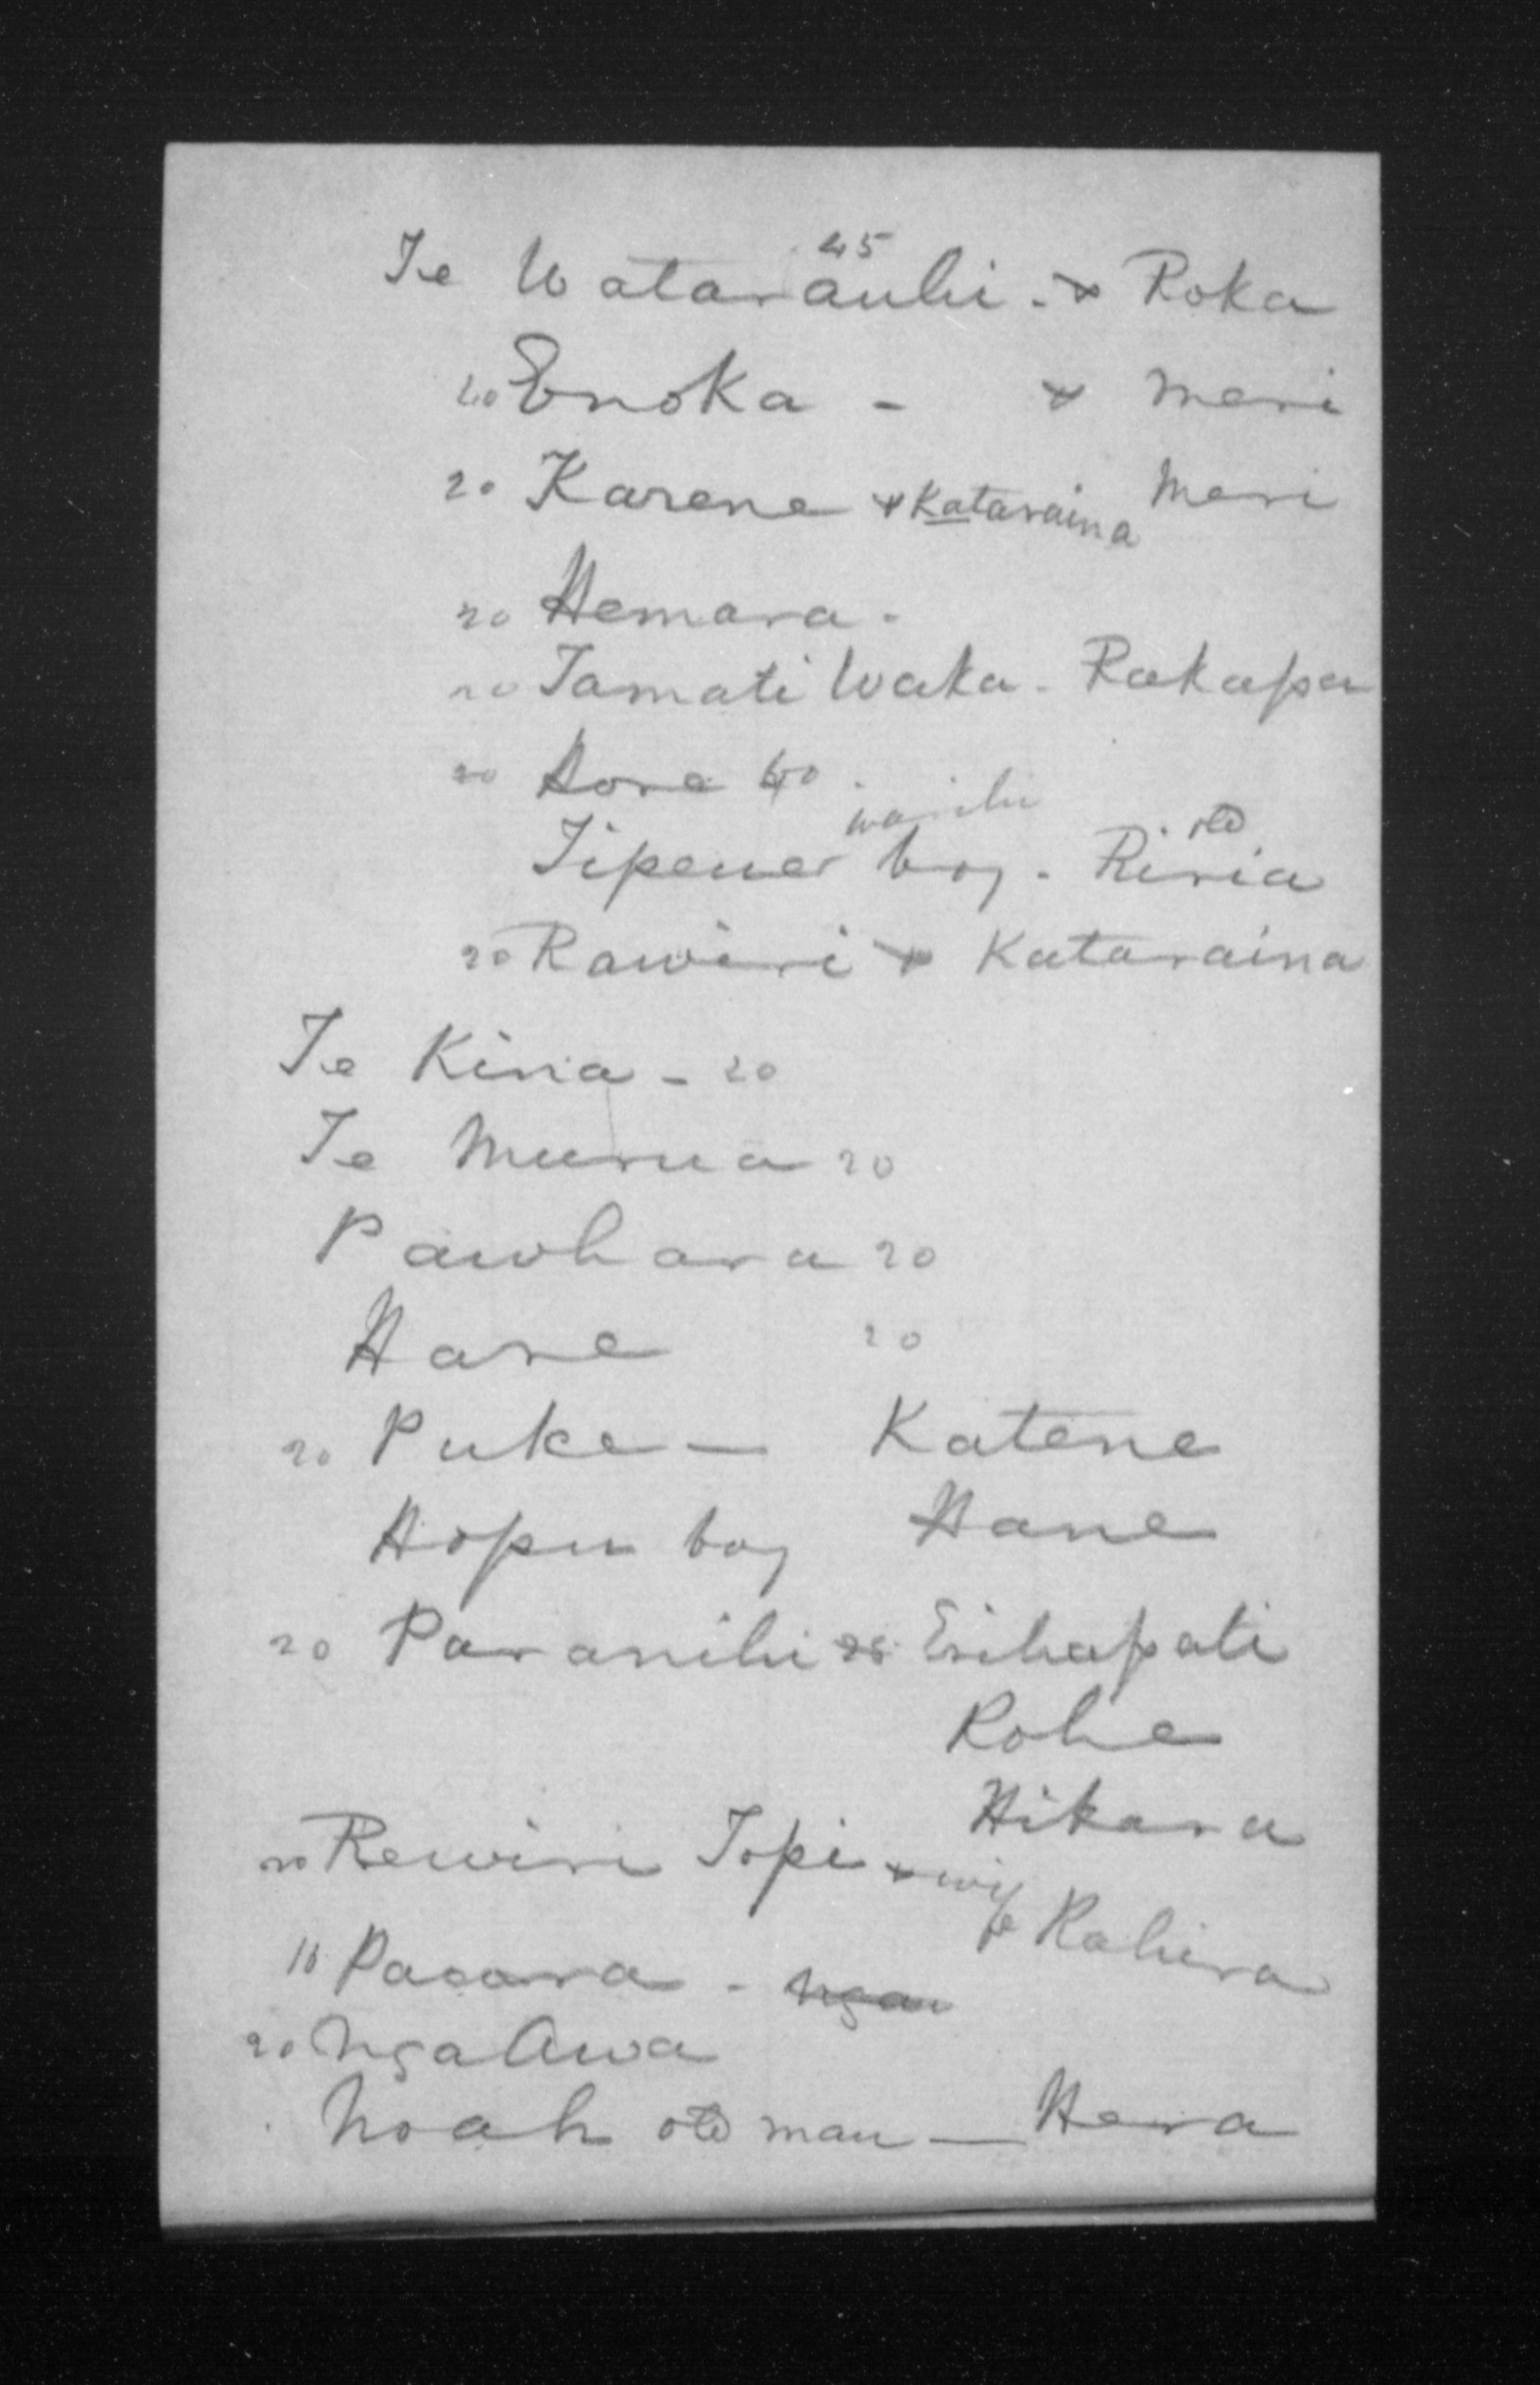 45
Te Watarauhi - & Roka
20 Enoka - & Meri
20 Karene & Kataraina Meri
20 Hemara -
20 Tamati Waka - Rakapa
20 Hore 40
Tipene boy - Riria old
20 Rawiri & Kataraina
Te Kina - 20
Te Murua 20
Pawhara 20
Hare 20
20 Puke — Katene
Hopu boy Hane
20 Paranihi Erihapati
Rohe
Hikara
20 Rewiri Topi & wife Rahira
18 Paoara - Ngaw
20 Nga Awa
Noah old man — Hera